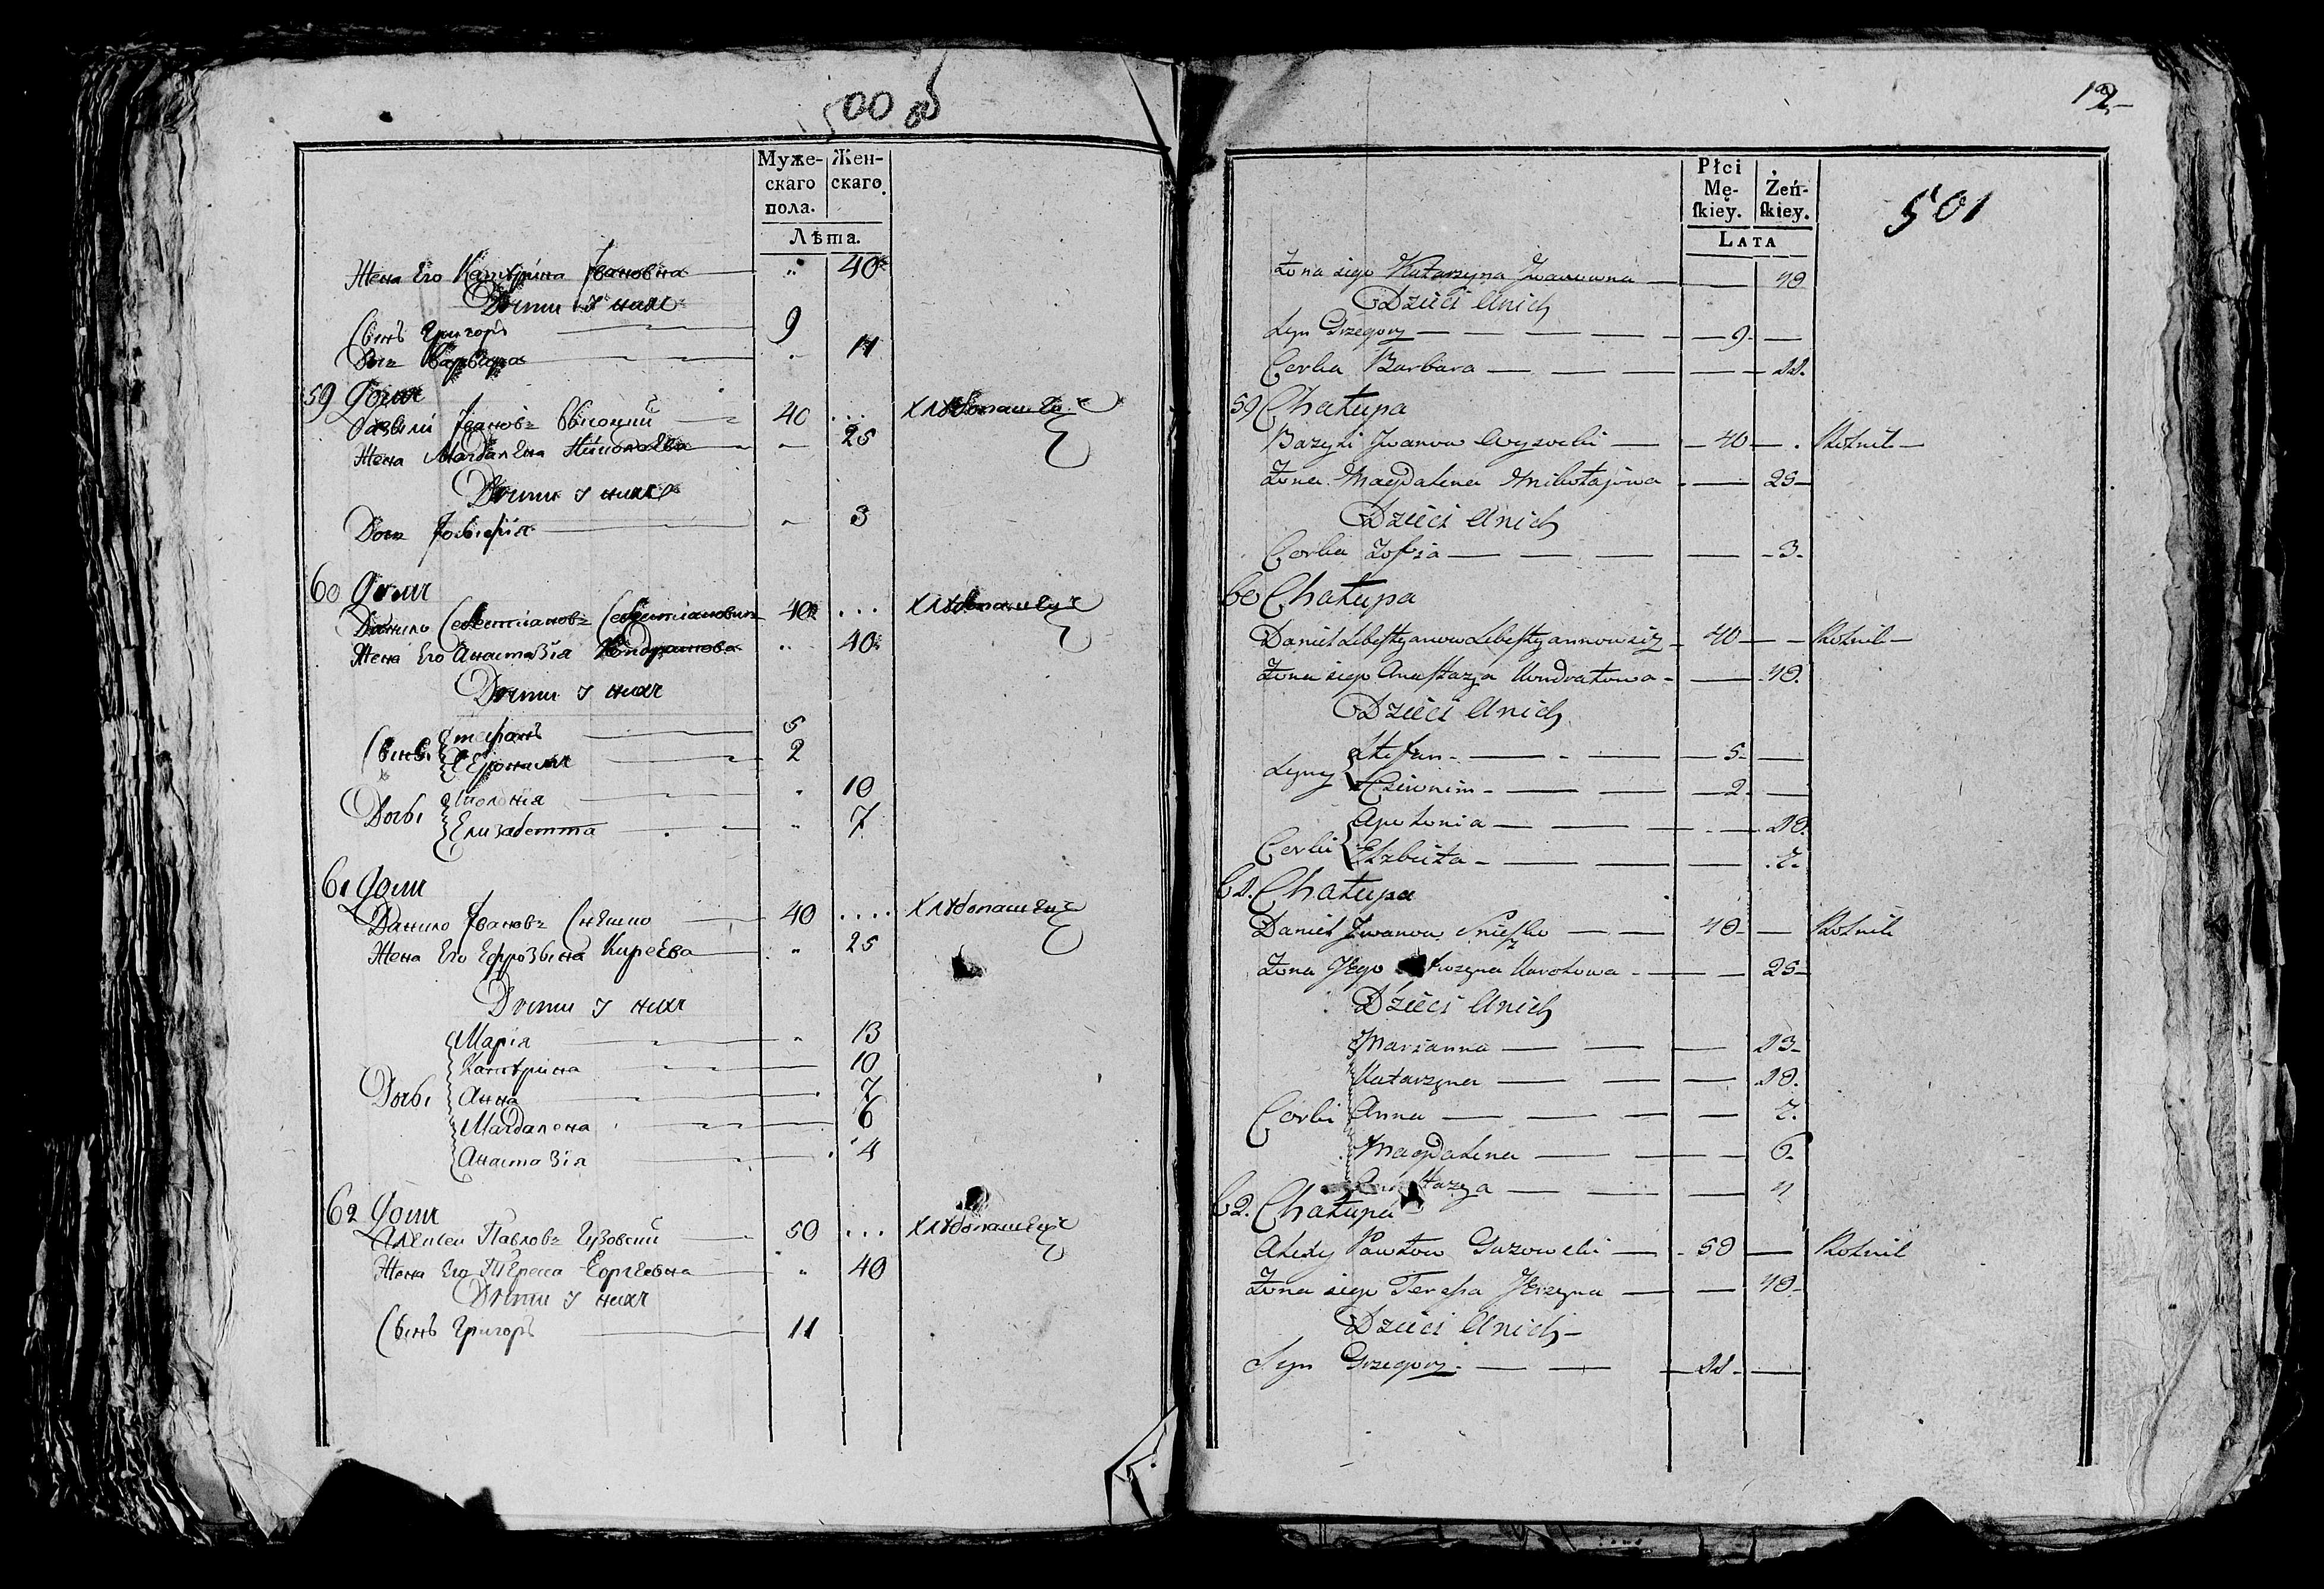 500 об
Муже-
скаго
пола.
Жен-
скаго.
Лѣта.
Жена Его Катерина Ивановна „ 40
Дѣти у нихъ
Сынъ Григоръ 9
Дочь Варвара „ 11
59 Домъ
Базыли Ивановъ Высоцкий 40 ... хлѣбопашецъ
Жена Магдалена Николаева „ 25
Дѣти у нихъ
Дочь „ 3
60 Домъ
Данило Себестiановъ Себестiановичъ 40 ... хлѣбопашецъ
Жена Его Анастазiя Кондратова „ 40
Дѣти у нихъ
Стефанъ 5
Сыны 2
Аполонiя „ 10
Дочы
Елизабетта „ 7
61 Домъ
Данило Ивановъ Снешко 40 .... хлѣбопашецъ
Жена Его Ефрозына Киреева „ 25
Дѣти у нихъ
Марiя „ 13
Катерина 10
Дочы Анна 7
Магдалена 6
Анастазiя 4
62 Домъ
Алексеи Павловъ Гузовский 50 ... хлѣбопашецъ
Жена Его Тереса Еоргевна „ 40
Дѣти у нихъ
Сынъ Григоръ 11
12
501
Płci
Mę-
ſkiey.
Żeń-
ſkiey.
LATA
Żona iego Katarzyna Iwanowna 40
Dzieci Unich
Syn Grzegorz 9
Corka Barbara 11
59 Chałupa
Bazyli Iwanow Wysocki 40 Rolnik
Żona Magdalena Mikołajowa 25
Dzieci Unich
Corka Zofia 3
60 Chałupa
Daniel Sebeſtyanow Sebeſtyannowicz 40 Rolnik
Żona iego Anaſtazya Kondratowa 40
Dzieci Unich
Stefan 5
Syny 2
Apolonia 10
Corki Elzbieta 7
61. Chałupa
Daniel Iwanow Snieſzko 40 Rolnik
Żona Jego 25
Dzieci Unich
Marianna 13
Katarzyna 10
Corki Anna 7
Magdalena 6
Anaſtazya 4
62. Chałupa
Alexy Pawłow Guzowski 50 Rolnik
Żona iego Tereſsa 40
Dzieci Unich
Syn Grzegorz 11